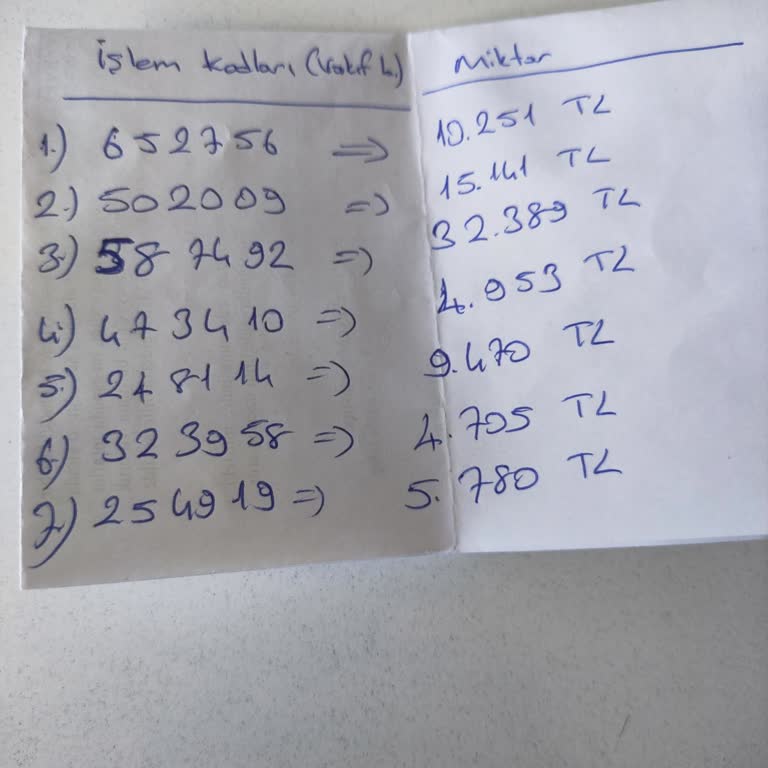 İşlem Kodları (Vakıf b.) Miktar
1.) 652756 => 10.251 TL
2.) 502009 => 15.141 TL
3.) 587492 => 32.389 TL
4.) 473410 => 4.953 TL
5.) 248114 => 9.470 TL
6.) 323958 => 4.705 TL
7.) 254919 => 5.780 TL